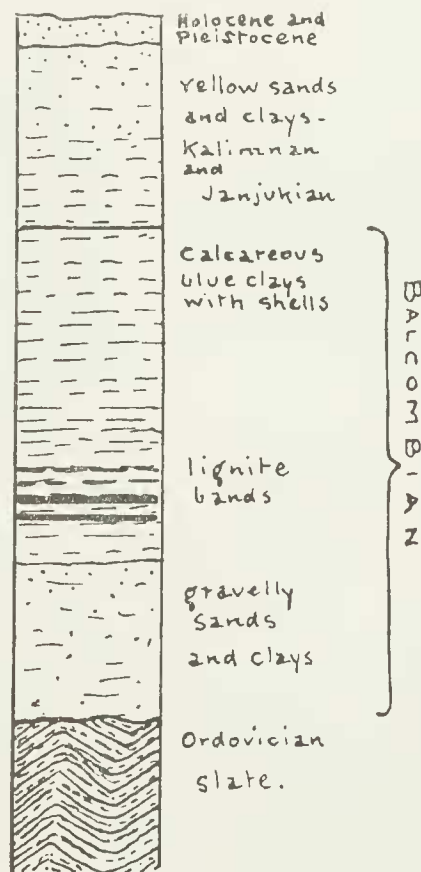 Holocene and
Pleistocene
Yellow sands
and clays-
Kalimnan
and
Janjukian
Calcareous
blue clays
with shells
BALCOMBIAN
lignite
bands
gravelly
sands
and clays
Ordovician
slate.